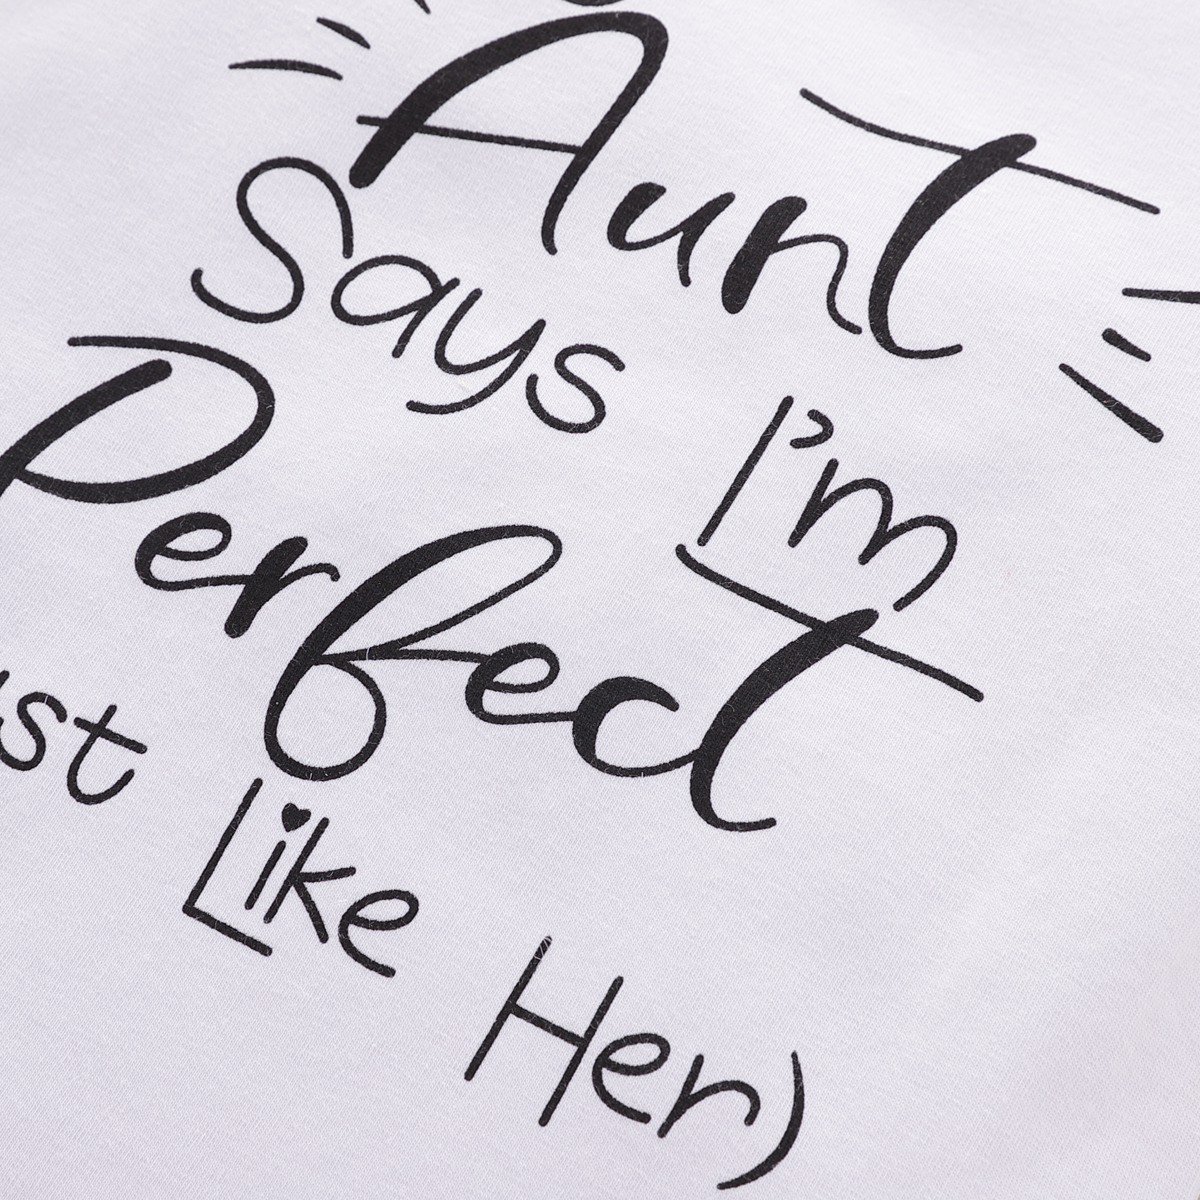 Aunt
Says I'm
Perfect
Like Her)